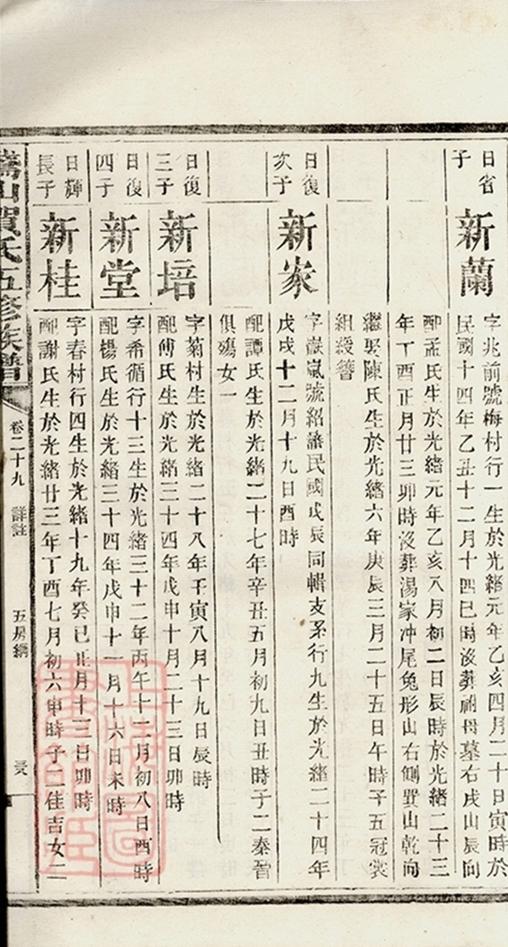 日省
子
新蘭
字兆前號梅村行一生於光緒元年乙亥四月二十日寅時於
民國十四年乙丑十二月十四巳時沒葬祖母墓右戌山辰向
配孟氏生於光緒元年乙亥八月初二日辰時於光緒二十三
年丁酉正月廿三卯時沒葬湯家冲尾兔形山右側巽山乾向
繼娶陳氏生於光緒六年庚辰三月二十五日午時子五冠裳
組綬簪
日復
次子
新家
字嶽嵐號紹謙民國戊辰同輯支系行九生於光緒二十四年
戊戌十二月十九日酉時
配譚氏生於光緒二十七年辛丑五月初九日丑時子二秦晉
俱殤女一
日復
三子
新培
字菊村生於光緒二十八年壬寅八月十九日辰時
配傅氏生於光緒三十四年戊申十月二十三日卯時
日復
四子
新堂
字希循行十三生於光緒三十二年丙午十二月初八日酉時
配楊氏生於光緒三十四年戊申十一月十六日未時
日輝
長子
新桂
字春村行四生於光緒十九年癸巳正月十三日卯時
配謝氏生於光緒廿三年丁酉七月初六申時子二佳吉女二
山賀氏五修族譜
卷二十九
詳註
五房網